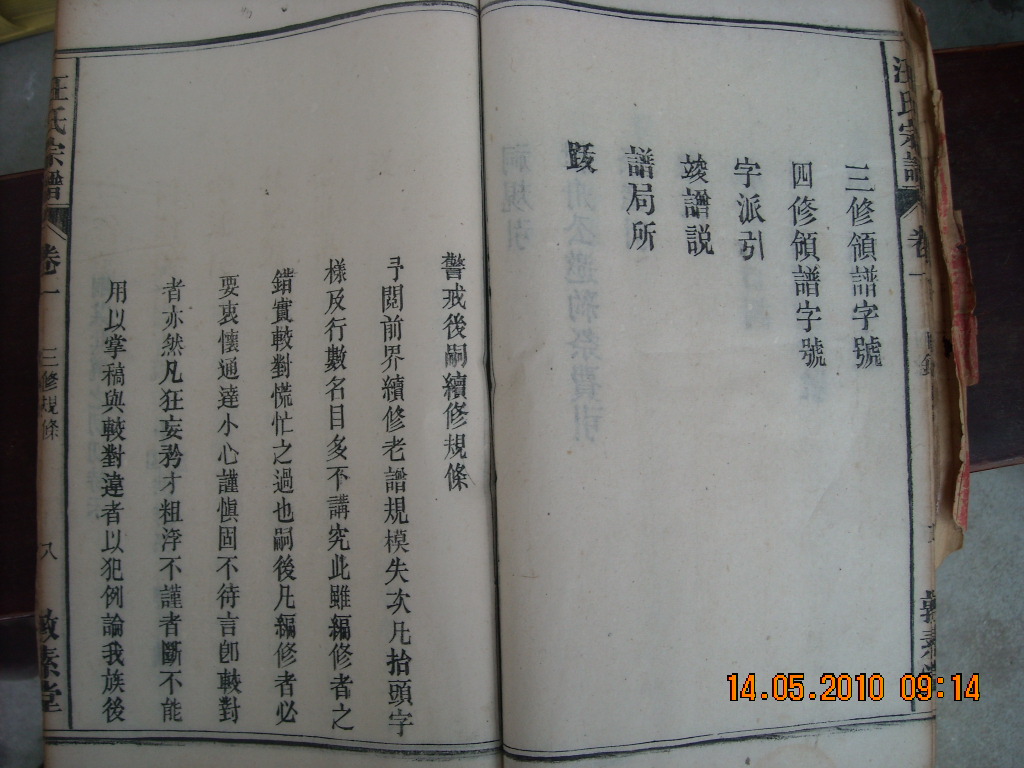 汪氏宗譜
卷一
三修領譜字號
四修領譜字號
字派引
竣譜説
譜局所
跋
警戒後嗣續修規條
予閱前界續修老譜規模失次凡抬頭字
樣及行數名目多不講究此雖編修者之
錯實較對慌忙之過也嗣後凡編修者必
要衷懷通達小心謹愼固不待言卽較對
者亦然凡狂妄矜才粗浮不謹者斷不能
用以掌稿與較對違者以犯例論我族後
汪氏宗譜
卷一
三修規條
八
敦素堂
14.05.2010 09:14